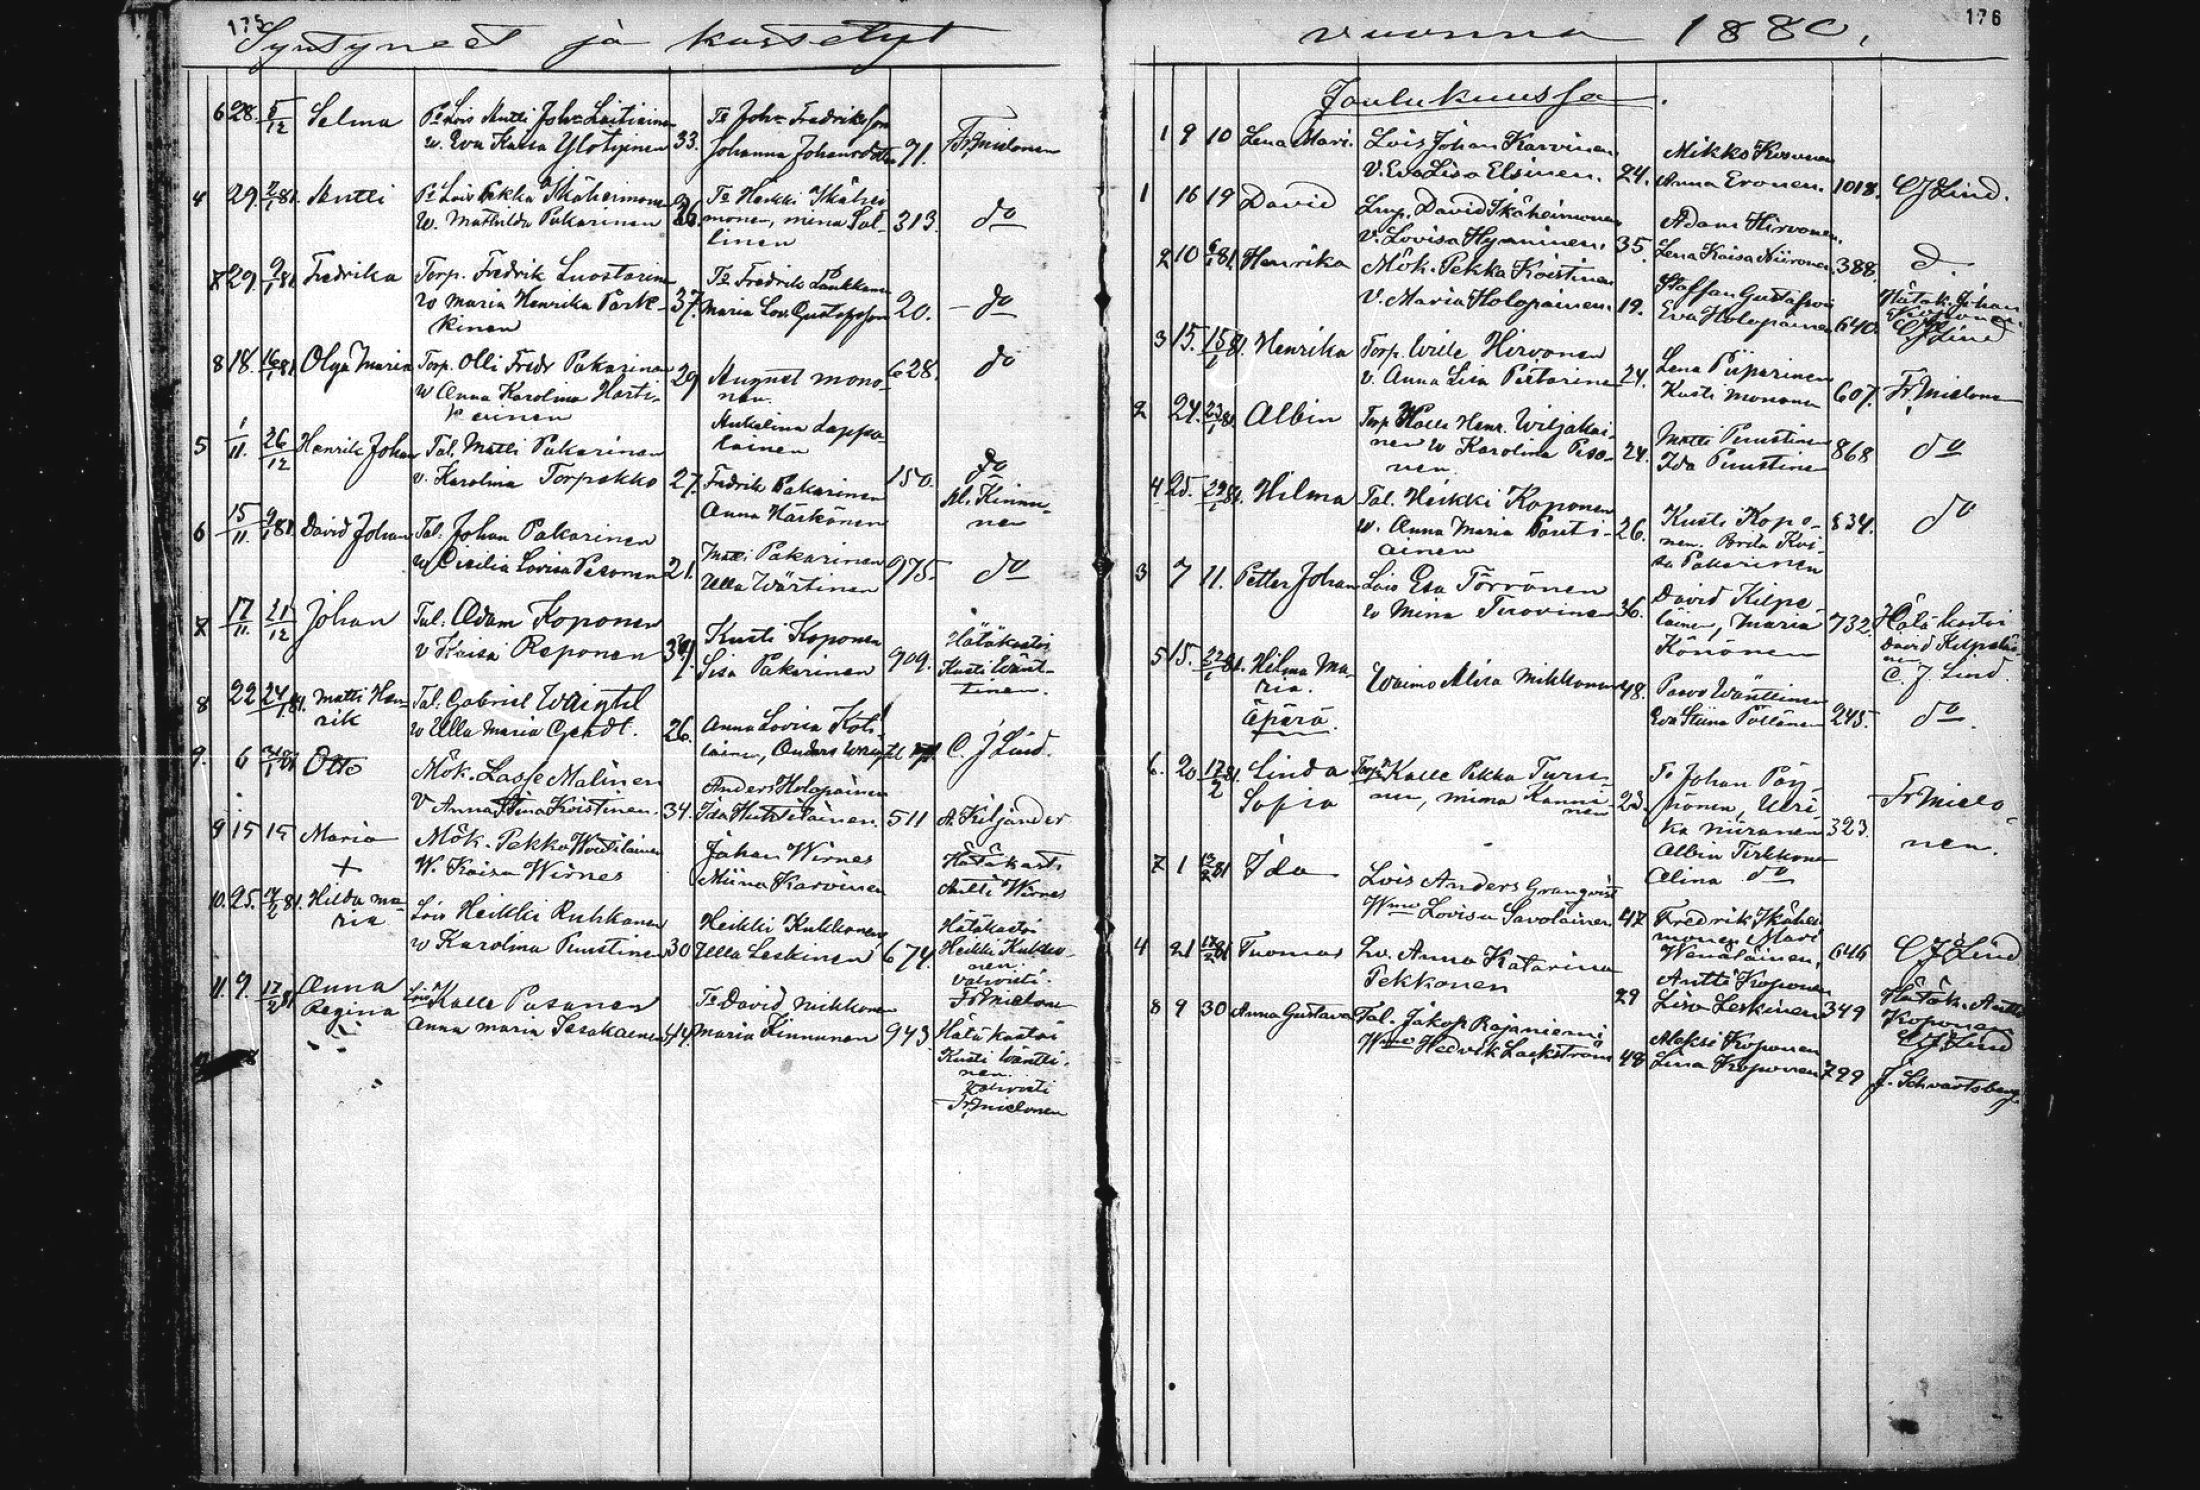 175
Syntyneet ja kastetyt
6 28. 5/12 Selma Ps Lois Antti Joh Laitinen
w. Eva Kaisa Ylötyinen 33.
Ts Joh Fredriksson
Johanna Johansdotter 91. Fr. Mielonen
4 29. 2/1 81. Antti Ps Lois Pekka Ikäheimonen
w. Mathilda Pakarinen 26.
Ts Heikki Ikähei
monen, mina Pal-
linen 313. do
7 29. 9/1 81 Fredrika Torp. Fredrik Luostarinen
w Maria Henrika Park-
kinen 37.
Ts Fredrik Paukkunen
Maria Lov. Gustafsson 20. do
8 18. 16/1 81 Olga Maria Torp. Olli Fredr Pakarinen
w Anna Karolina Harti-
kainen 29
August Mono-
nen.
Ankelina Lappa-
lainen 628. do
5 1/11. 26/12 Henrik Johan Tal. Matti Pakarinen
v. Karolina Torpakko 27.
Fredrik Pakarinen
Anna Härkönen 150. do
Al. Kinnu-
nen
6 15/11. 9/1 81. David Johan Tal. Johan Pakarinen
w Cicilia Lovisa Pesonen 21.
Matti Pakarinen
Ulla Wärtinen 975. do
7 17/11. 21/12 Johan Tal. Adam Koponen
v Kaisa Reponen 34.
Kusti Koponen
Lisa Pakarinen 909. Hätäkastoi
Kusti Wänt-
tinen.
8 22 24/1 81. Matti Hen-
rik Tal. Gabriel Waigtil
w Ulla Maria 26.
Anna Lovisa Koti-
lainen, Anders C. J Lind.
9. 6 31/1 81 Otto Mök. Lasse Malinen
V Anna Stina Koistinen. 34.
Anders Holopainen
Ida Huttilainen. 511 A. Kiljander
9 15 15 Maria + Mök. Pekka Woutilainen
W. Kaisa Wirnes
Johan Wirnes
Miina Karvinen Hätäkasti
Antti Wirnes
10. 25. 17/2 81. Hilda Ma-
ria Lois Heikki Ruhkanen
w Karolina Puustinen 30
Heikki Kukkonen
Ulla Leskinen 674. Hätäkastoi
Heikki Kukko-
nen.
Vahvisti
Fr. Mielonen
11. 9. 17/2 81 Anna
Regina Lois Kalle Pasanen
Anna Maria 44.
Ts David Mikkonen
Maria Kinnunen 943 Hätäkastoi
Kusti Wäntti-
nen.
Vahvisti
Fr. Mielonen
176
vuonna 1880.
Joulukuussa.
1 9 10 Lena Mari. Lois Johan Karvinen
V. Eva Lisa Elsinen. 24.
Mikko Kosonen
Anna Eronen. 1018. CJ Lind.
1 16 19 David Lmp. David Ikäheimonen
V. Lovisa Hyvninen. 35.
Adam Hirvonen.
Lena Kaisa Niironen 388. d.
2 10 6/1 81. Henrika Mök. Pekka Koistinen
V. Maria Holopainen. 19.
Staffan Gustafson
Eva Holopainen 640. Hätäk. Johan
Koponen.
CJ Lind
3 15. 15/1 81. Henrika Torp. Wille Hirvonen
v. Anna Lisa Partarinen 24.
Lena Piiparinen
Kusti Mononen 607. Fr. Mielonen
2 24. 23/1 81. Albin Torp Kalle Henr. Wiljakai-
nen w Karolina Peso-
nen. 24.
Matti Puustinen
Ida Puustinen 868 do
4 25. 29/1 81. Hilma Tal. Heikki Koponen
w. Anna Maria Pauti-
ainen 26.
Kusti Kopo-
nen. Brita Kai-
sa Pakarinen 834. do
3 7 11. Petter Johan Lois Esa Törrönen
w Mina Tirovinen 36.
David Kilpe-
läinen, Maria
Könönen 732. Hätäkastoi
David Kilpeläi-
nen
C. J Lind.
5 15. 22/1 81. Hilma Ma-
ria.
Äpärä Waimo Alisa Mikkonen 48.
Paavo Wänttinen
Eva Stiina Pöllänen 245. do.
6. 20 17/2 81. Linda
Sofia Torp Kalle Pekka Turu-
nen, Mina Kanni-
nen 23.
Ts Johan Pöy-
hönen, Ulri-
ka Niiranen 323. Fr. Mielo
nen.
Albin Tirkkonen
Alina do
7 1 13/2 81 Ida Lois Anders Granqvist
Wmo Lovisa Savolainen 47
Fredrik Ikähei
monen Mari
Wenäläinen, 646 CJ Lind
4 21 17/2 81 Tuomas Lv. Anna Katarina
Pekkonen 29
Antti Koponen
Lisa Leskinen 349 Hätäk. Antti
Koponen
CJ Lind
8 9 30 Anna Gustava Tal. Jakop Rajaniemi
Wmo Hedvik Lackström 48
Aleksi Koponen
Lina Koponen 799 J. Schvartsberg